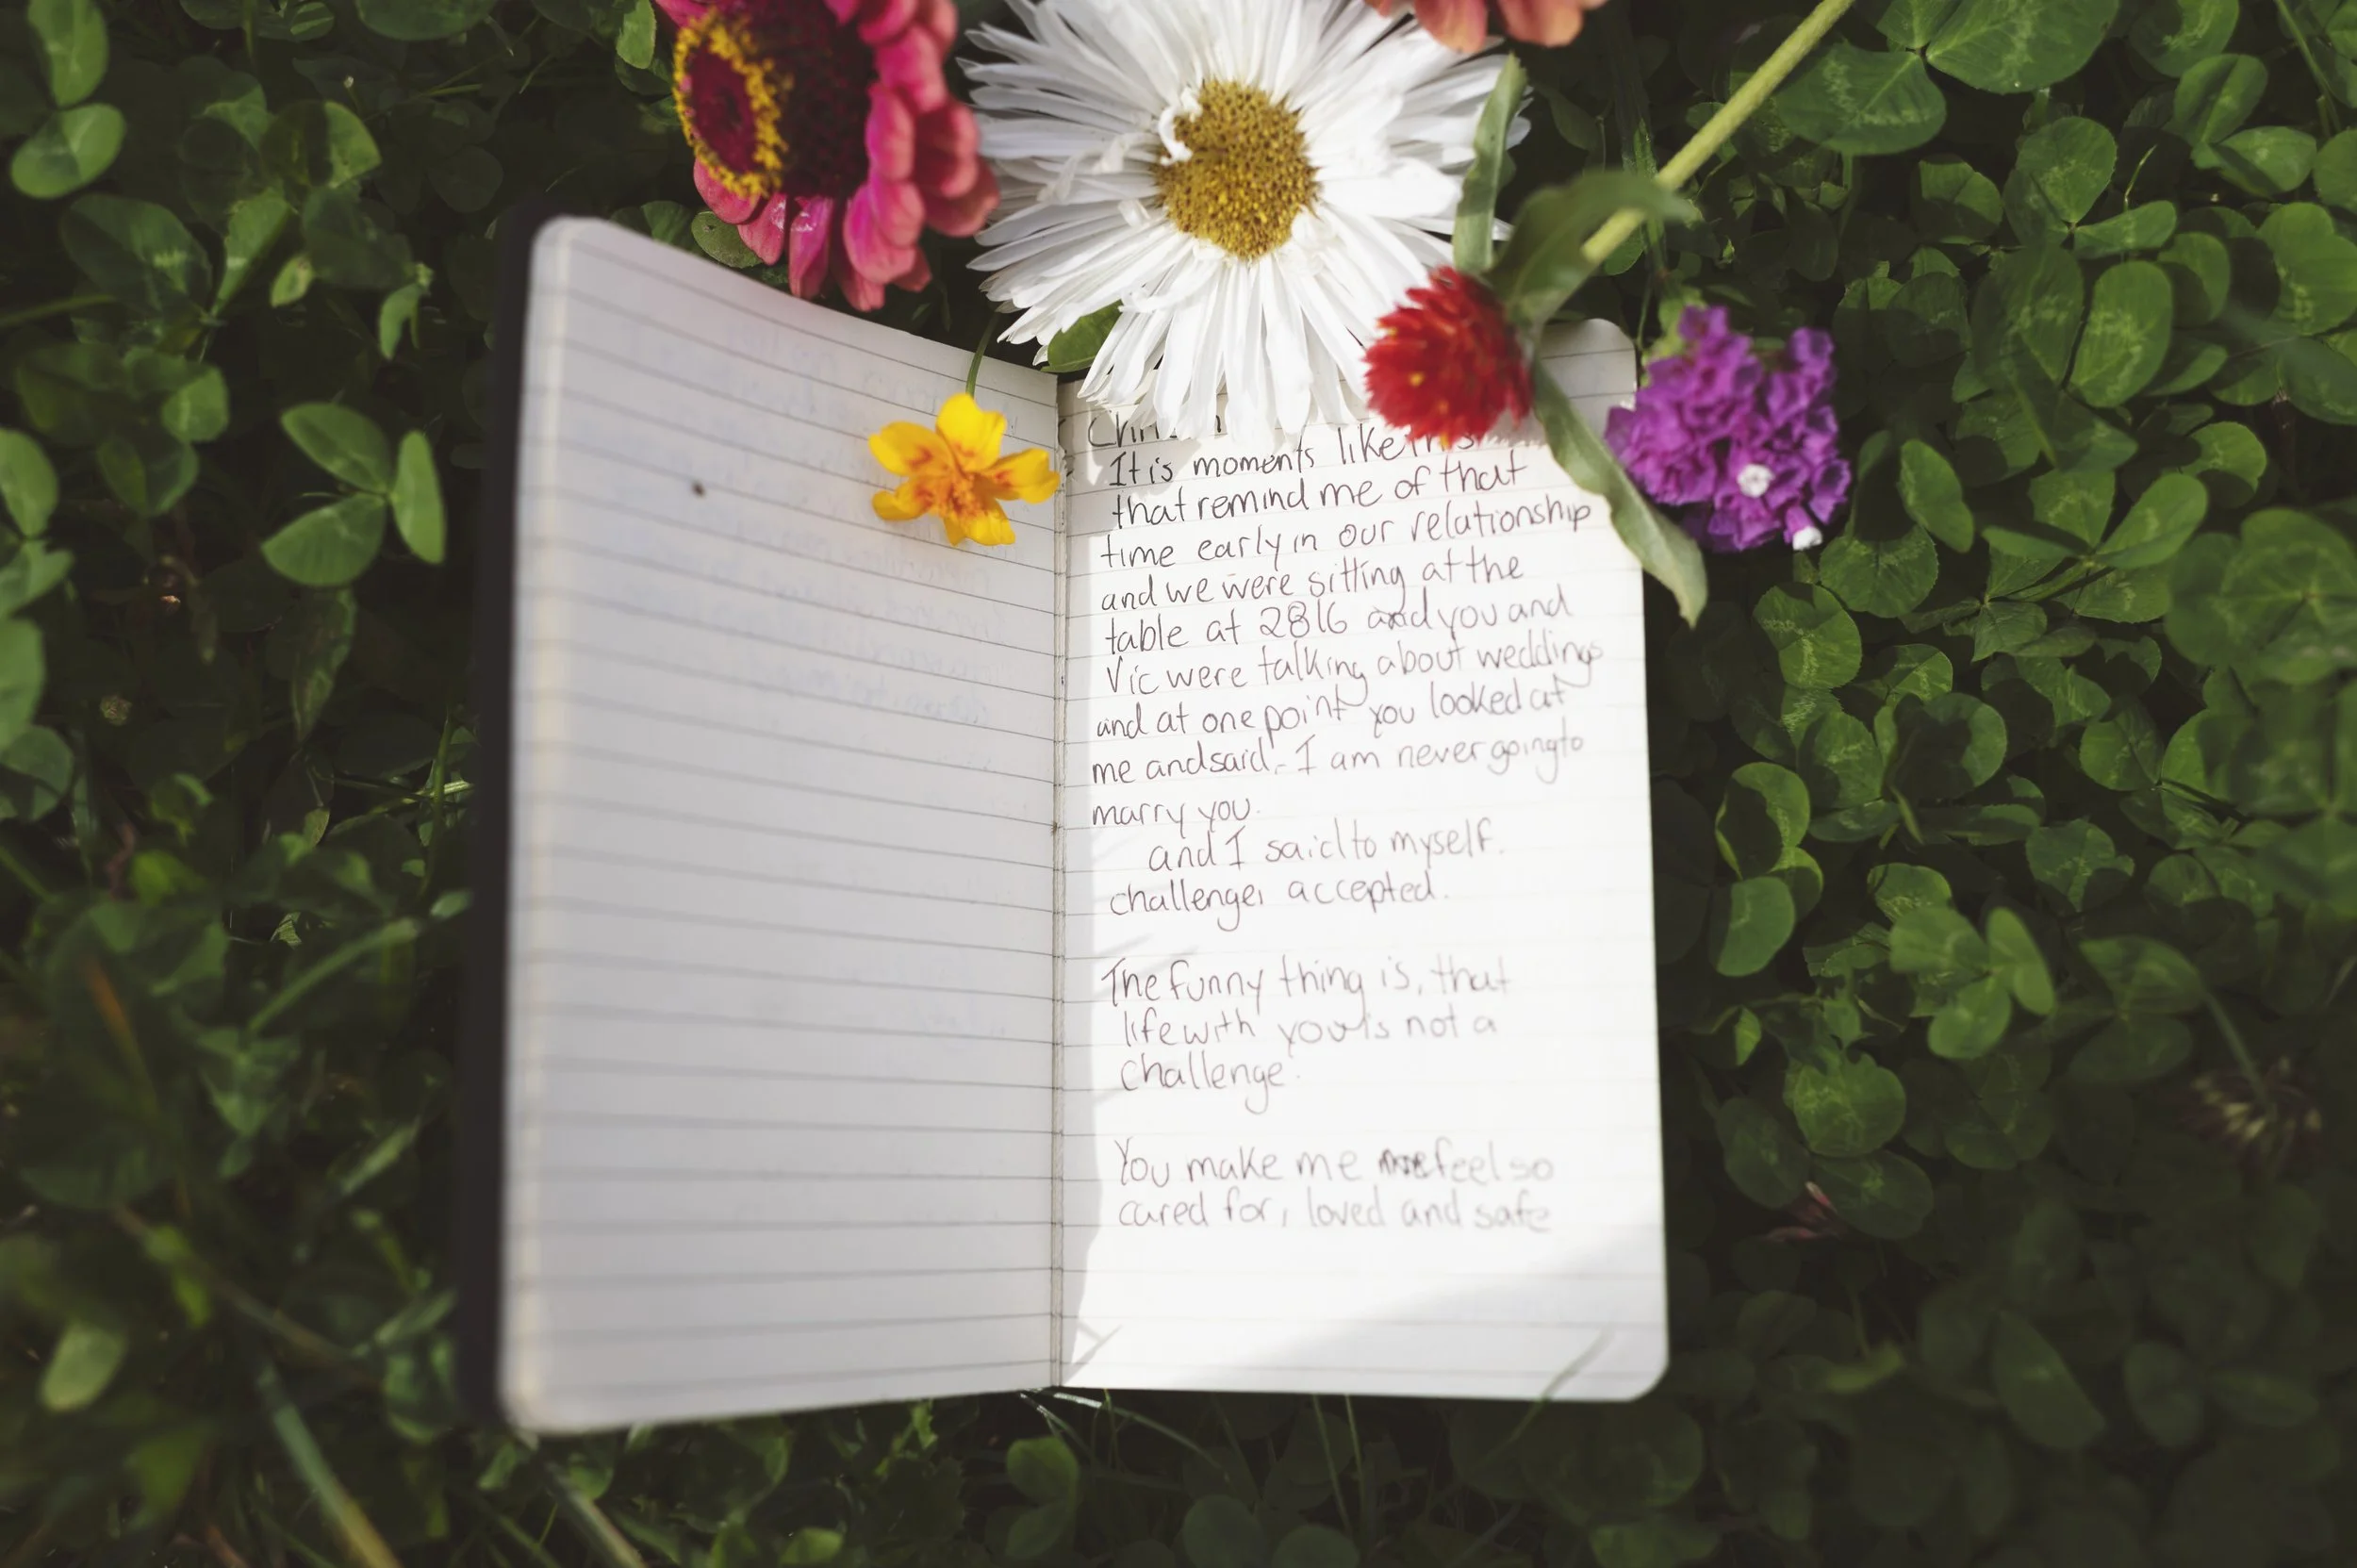 It is moments like this
that remind me of that
time early in our relationship
and we were sitting at the
table at 2816 and you and
Vic were talking about weddings
and at one point you looked at
me and said, - I am never going to
marry you.
and I said to myself.
challenge, accepted.
The funny thing is, that
life with you is not a
challenge.
You make me feel so
cared for, loved and safe